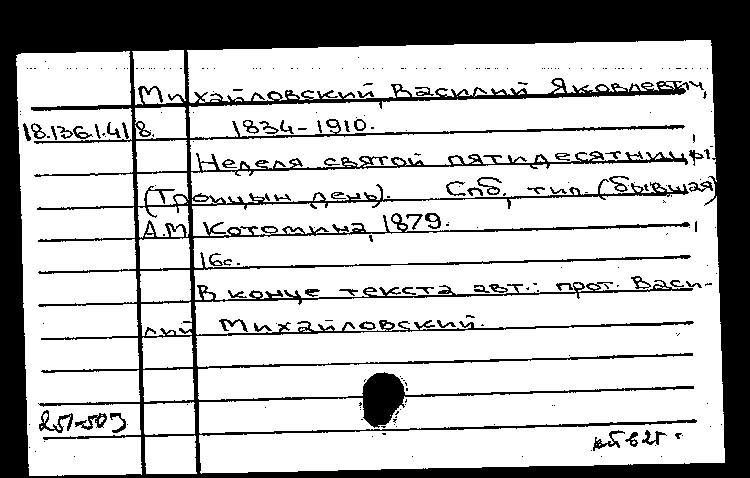 Михайловский, Василий Яковлевич,
18.136.1.418. 1834-1910.
Неделя святой пятидесятницы.
(Троицын день). Спб., тип. (бывшая)
А.М. Котомина, 1879.
16с.
В конце текста авт.: прот. Васи-
лий Михайловский.
251-503